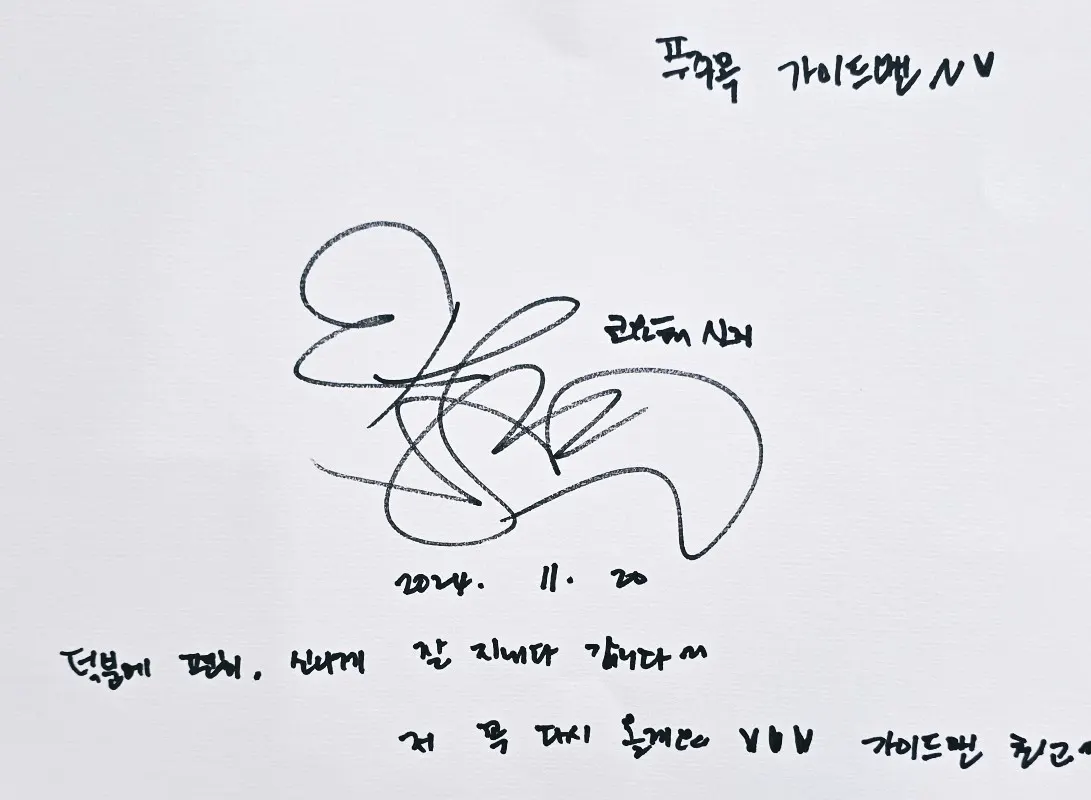 푸꾸옥 가이드맨 ~♥
코요태 신지
2024. 11. 20
덕분에 편히, 신나게 잘 지내다 갑니다~
저 꼭 다시 올게요 ♥♥♥ 가이드맨 최고